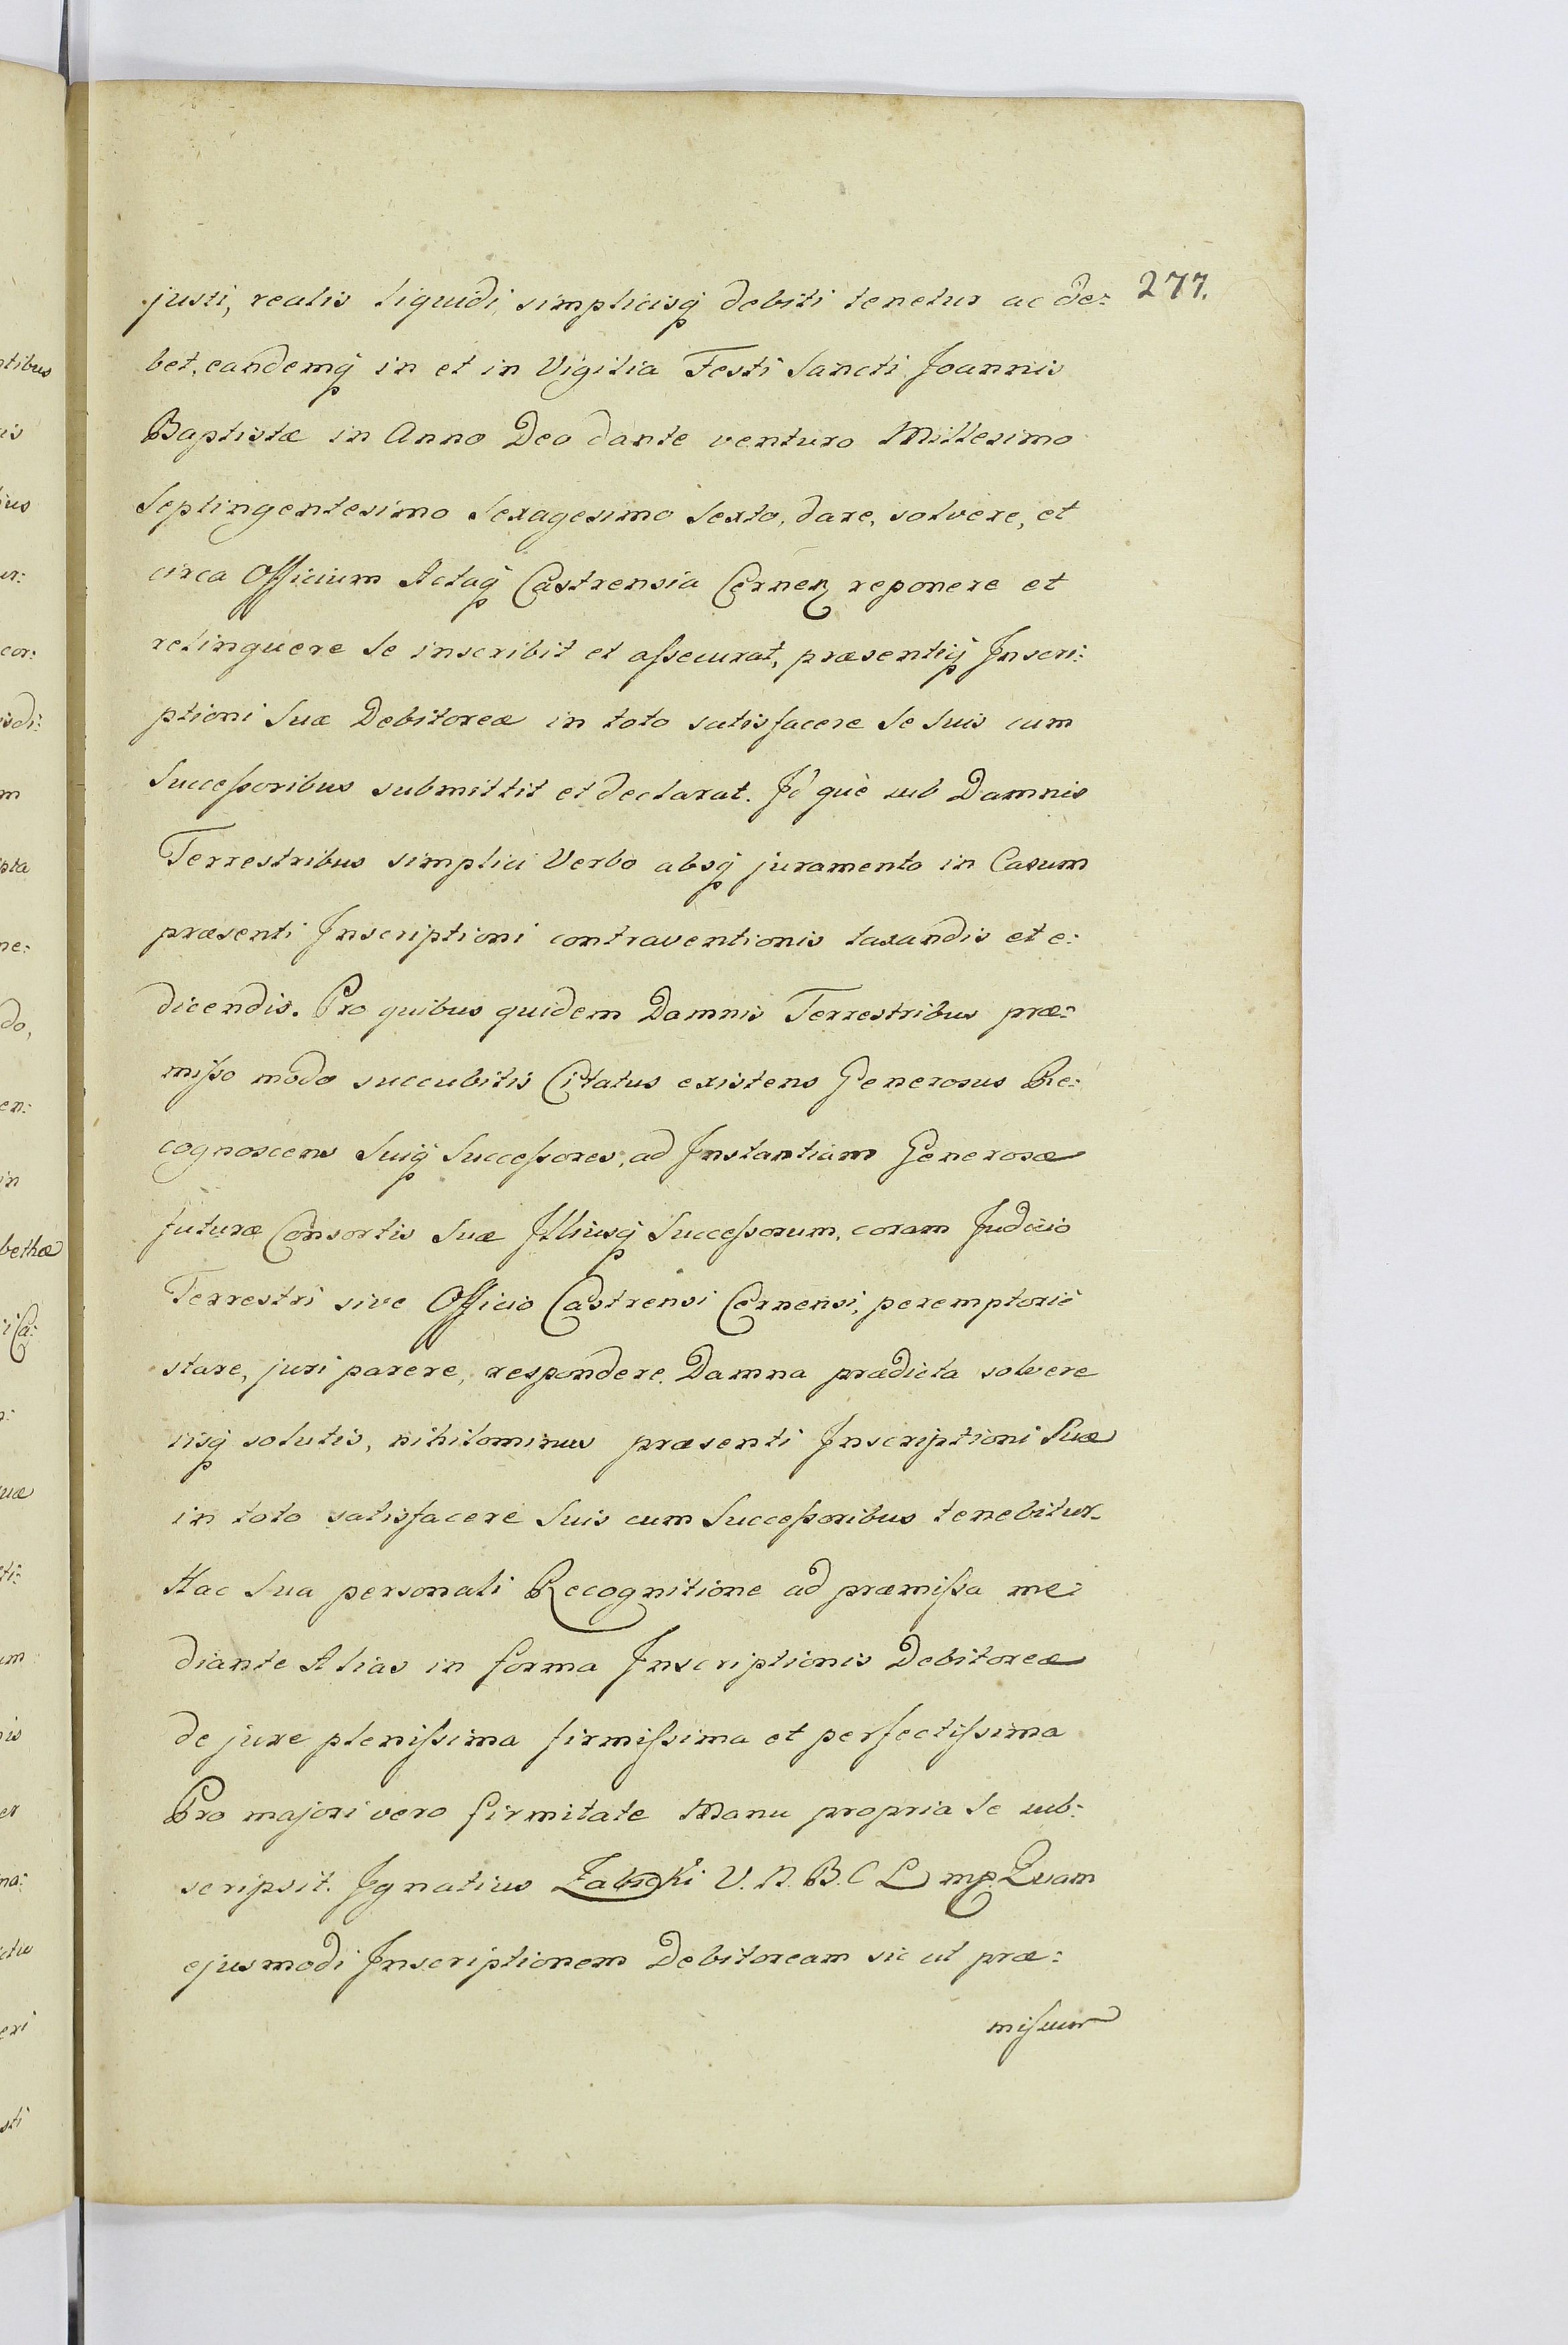 277.
justi, realis liquidi, simplicisq̃ debiti tenetur ac de:
bet, eandemq̃ in et in Vigilia Festi Sancti Joannis
Baptistæ in Anno Deo dante venturo Millesimo
Septingentesimo Sexagesimo Sexto, dare, solvere, et
circa Officium Actaq̃ Castrensia Cernen reponere et
relinquere se inscribit et aſsecurat, præsentiq̃ Inscri:
ptioni Suæ Debitoreæ in toto satisfacere se suis cum
Succeſsoribus submittit et declarat. Id què sub Damnis
Terrestribus simplici Verbo absq̃ juramento in Casum
præsenti Inscriptioni contraventionis taxandis et e:
dicendis. Pro quibus quidem Damnis Terrestribus præ:
miſso modo succubitis Citatus existens Generosus Re:
cognoscens Suiq̃ Succeſsores, ad Instantiam Generosæ
futuræ Consortis Suæ Illiusq̃ Succeſsorum, coram Judicio
Terrestri sive Officio Castrensi Cernensi, peremptoriè
stare, juri parere, respondere Damna prædicta solvere
iisq̃ solutis, nihilominus præsenti Inscriptioni Suæ
in toto satisfacere Suis cum Succeſsoribus tenebitur.
Hac Sua personali Recognitione ad præmiſsa me:
diante Alias in forma Inscriptionis Debitoreæ
de jure pleniſsima firmiſsima et perfectiſsima
Pro majori vero firmitate Manu propria se sub:
scripsit. Ignatius V. N. B. C L mp. Quam
ejusmodi Inscriptionem Debitoream sic ut præ:
miſsum